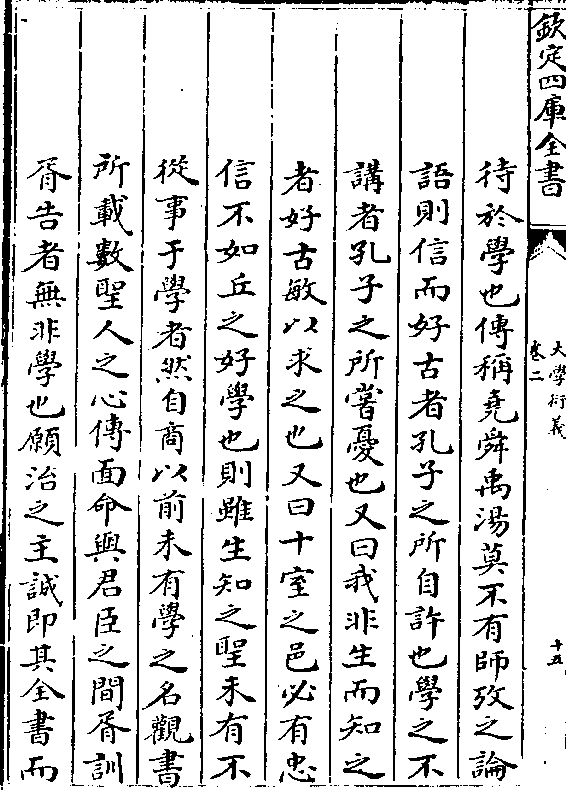 欽定四庫全書
大學衍義
卷二
十五
待於學也傳稱堯舜禹湯莫不有師攷之論
語則信而好古者孔子之所自許也學之不
講者孔子之所嘗憂也又曰我非生而知之
者好古敏以求之也又曰十室之邑必有忠
信不如丘之好學也則雖生知之聖未有不
從事于學者然自商以前未有學之名觀書
所載數聖人之心傳面命與君臣之間胥訓
胥告者無非學也願治之主誠即其全書而